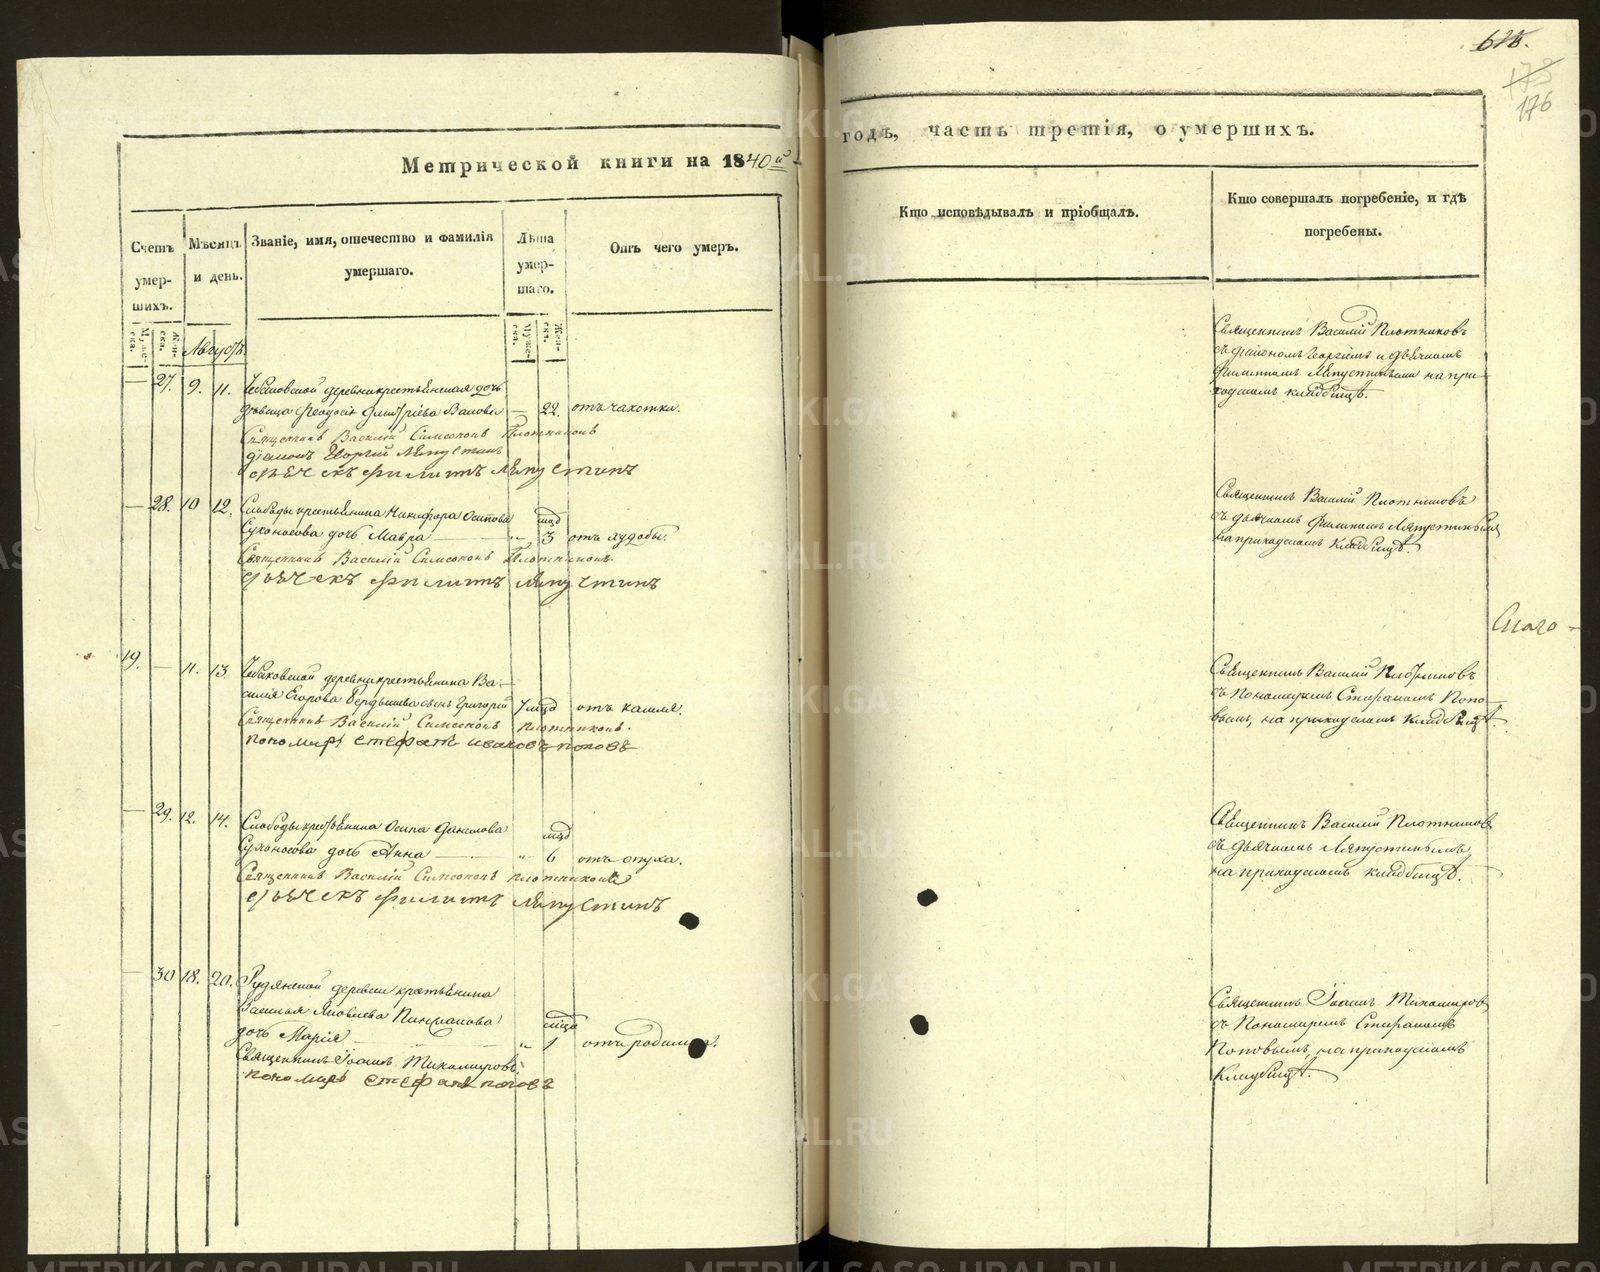 Метрической книги на 1840й
Счетъ умер-шихъ.
Муже-ска.
Жен-ска.
Мѣсяцъ и день.
Званіе, имя, отечество и фамилія умершаго.
Лѣта умер-шаго.
Муже-ска.
Жен-ска.
Отъ чего умеръ.
Августъ.
— 27. 9. 11. деревни крестьянская дочь
дѣвица Феодосія — 22. отъ чахотки.
Священникъ Василій Симеоновъ Плотниковъ
діаконъ Георгій Ляпустинъ
дьячекъ Филиппъ Ляпустинъ
— 28. 10 12. Слободы крестьянина Никифора Осипова мцд
Сухоносова дочь Мавра — „ 3 отъ худобы.
Священникъ Василій Симеоновъ Плотниковъ
дьячекъ Филиппъ Ляпустинъ
19. — 11. 13. деревни крестьянина Ва-
силія Егорова Бердышева сынъ Григорій 7 мцд отъ кашля.
Священникъ Василій Симеоновъ Плотниковъ.
пономарь Стефанъ Ивановъ Поповъ
— 29. 12. 14. Слободы крестьянина Осипа Данилова мцд
Сухоносова дочь Анна — „ 6 отъ
Священникъ Василій Симеоновъ Плотниковъ
дьячекъ Филиппъ Ляпустинъ
— 30 18. 20. Рудянской деревни крестьянина
Василья Яковлева
дочь Марія — „ 1 отъ родимца.
Священникъ Іоаннъ Тихомировъ
пономарь Стефанъ Поповъ
176
годъ, часть третія, о умершихъ.
Кто исповѣдывалъ и пріобщалъ.
Кто совершалъ погребеніе, и гдѣ погребены.
Священникъ Василій Плотниковъ
съ діакономъ Георгіемъ и дьячкомъ
Филиппомъ Ляпустиными на при-
ходскомъ кладбищѣ.
Священникъ Василій Плотниковъ
съ дьячкомъ Филиппомъ Ляпустинымъ
на приходскомъ кладбищѣ.
Священникъ Василій Плотниковъ
съ Пономаремъ Стефаномъ Попо-
вымъ, на приходскомъ кладбищѣ.
Священникъ Василій Плотниковъ
съ дьячкомъ Ляпустинымъ
на приходскомъ кладбищѣ.
Священникъ Іоаннъ Тихомировъ
съ Пономаремъ Стефаномъ
Поповымъ, на приходскомъ
кладбищѣ.
METRIKI.GASO-URAL.RU